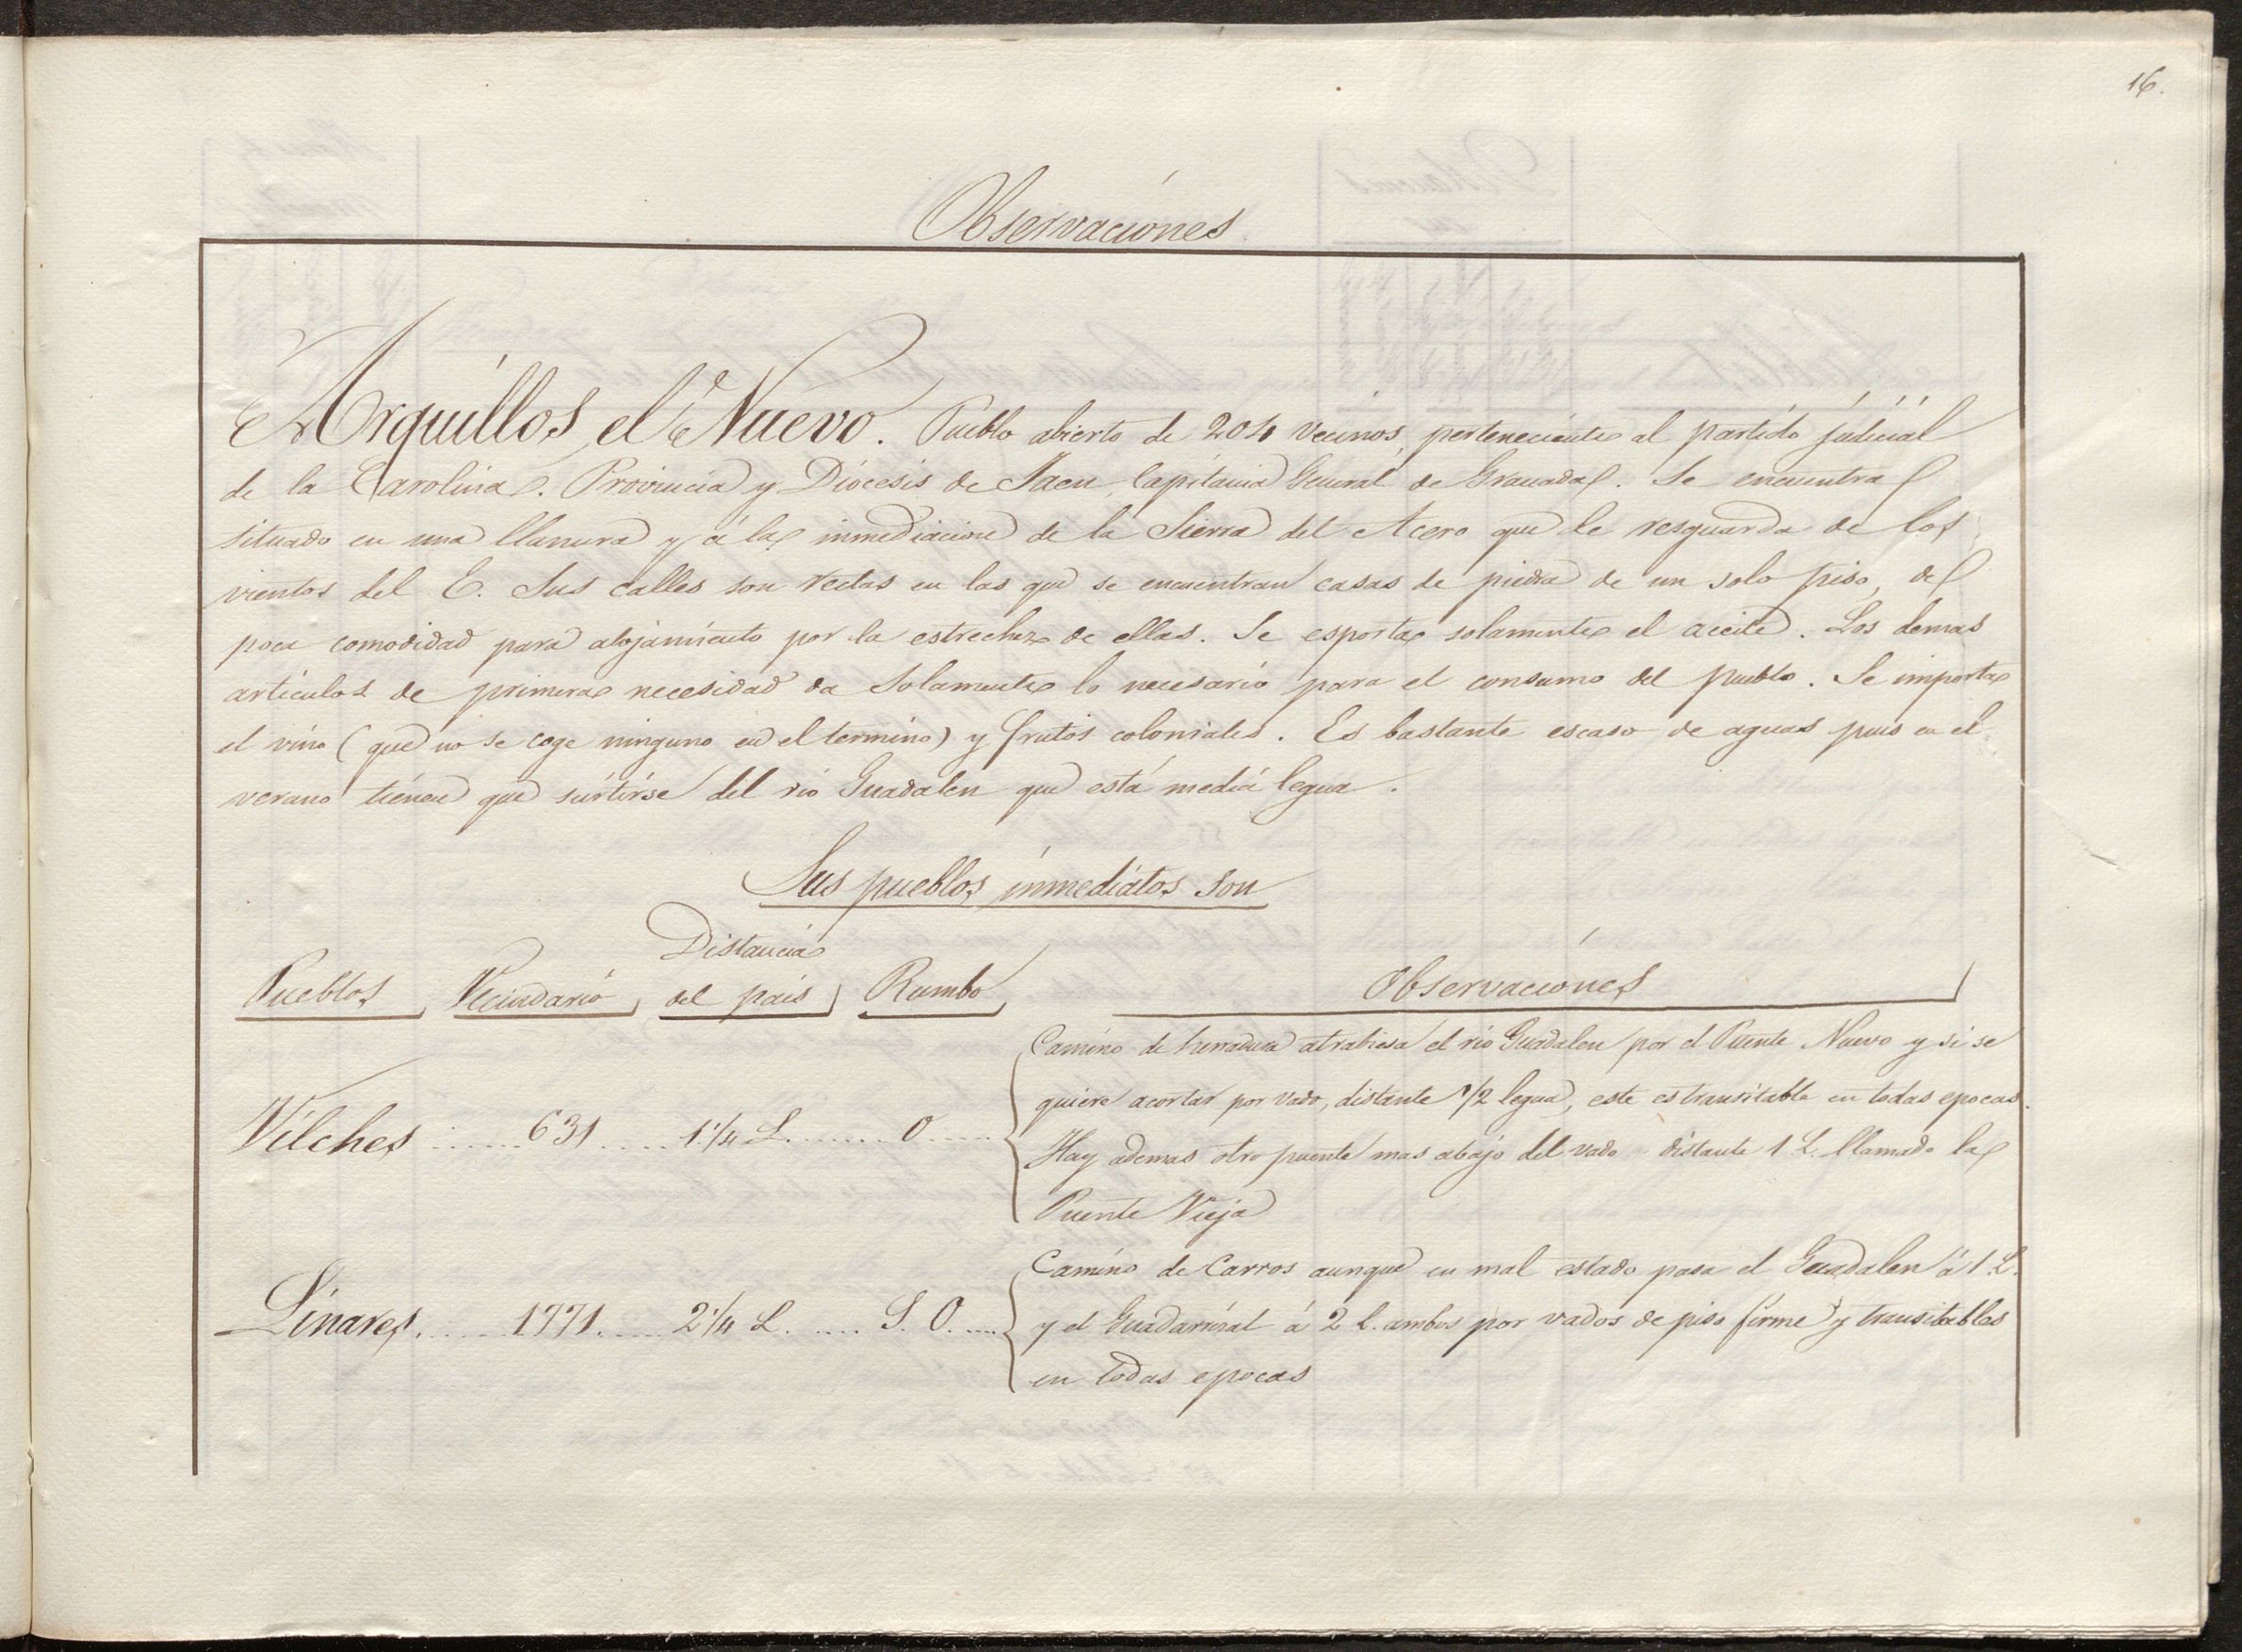 16.
Observaciones
Arquillos el Nuevo. Pueblo abierto de 204 vecinos, perteneciente al partido judicial
de la Carolina. Provincia y Diocesis de Jaen, Capitania General de Granada. Se encuentra
situado en una llanura y á la inmediacion de la Sierra del Acero que le resguarda de los
vientos del E. Sus calles son rectas en las que se encuentran casas de piedra de un solo piso, de
poca comodidad para alojamiento por la estrechez de ellas. Se esporta solamente el aceite. Los demas
articulos de primera necesidad da solamente lo necesario para el consumo del pueblo. Se importa
el vino (que no se coge ninguno en el termino) y frutos coloniales. Es bastante escaso de aguas pues en el
verano tienen que surtirse del rio Guadalen que está media legua.
Sus pueblos inmediatos son
Pueblos, Vecindario, Distancia del pais, Rumbo, Observaciones
Camino de herradura atrabiesa el rio Guadalen por el Puente Nuevo y si se
quiere acortar por vado, distante 1/2 legua, este es transitable en todas epocas.
Vilches ........ 631 ..... 1 1/4 L ........ O .....
Hay ademas otro puente mas abajo del vado distante 1 L. llamado la
Puente Vieja
Camino de Carros aunque en mal estado pasa el Guadalen á 1 L.
Linares ........ 1771 ..... 2 1/4 L ..... S. O. .... y el Guadarrizal á 2 L. ambos por vados de piso firme y transitables
en todas epocas